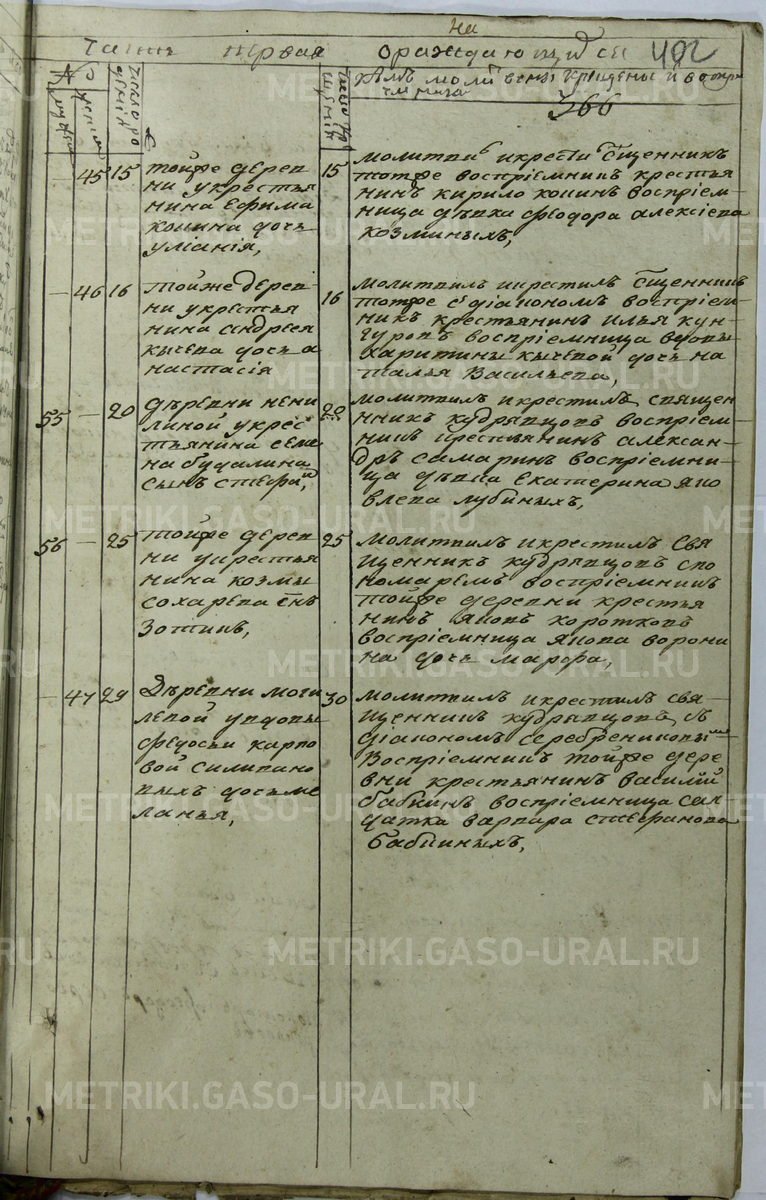 На
часть первая о раждающихся 402
число родѣній
число крещенїй
кѣмъ молитвены крещены и воспри
емника
366
45 15 тойже дерев
ни укрестья
нина ефима
конина дочь
улианія,
15 молитви и крести сщенникъ
тотже воспріемникъ крестья
нинъ кирило конинъ воспріем
ница дѣвка феодора алексіева
козминыхъ,
— 46 16 тойже дерев
ни укрестья
нина андрея
кычева дочь а
настасія
16 молитвилъ икрестилъ сщенникъ
тотже сдіакономъ воспріем
никъ крестьянинъ илья кун
гуровъ воспріемница вдовы
харитины кычевой дочь на
талья васильева,
55 — 20 дѣревни нени
линой укрес
тьянина семе
на будалина
сынъ стефанъ,
20 молитвилъ икрестилъ священ
нникъ кудрявцовъ воспріем
никъ крестьянинъ алексан
дръ самаринъ воспріемни
ца дѣвка екатерина яко
влева лубиныхъ,
56 — 25 тойже дерев
ни укрестья
нина козмы
сохарева снъ
зотикъ,
25 молитвилъ икрестилъ свя
щенникъ кудрявцовъ спо
номаремъ воспріемникъ
тойже деревни крестья
нинъ яковъ коротковъ
воспріемница якова ворони
на дочь марфа,
— 47 29 Дѣревни моги
левой увдовы
федосьи карпо
вой силипано
выхъ дочь ме
ланья,
30 молитвилъ икрестилъ свя
щенникъ кудрявцовъ съ
діакономъ серебрениковымъ
воспріемникъ тойже дере
вни крестьянинъ василій
бабкинъ воспріемница сал
датка варвара стефанова
бабкиныхъ,
METRIKI.GASO-URAL.RU